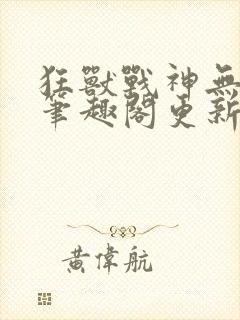 狂獸戰神無
筆趣閣更新
黃偉航